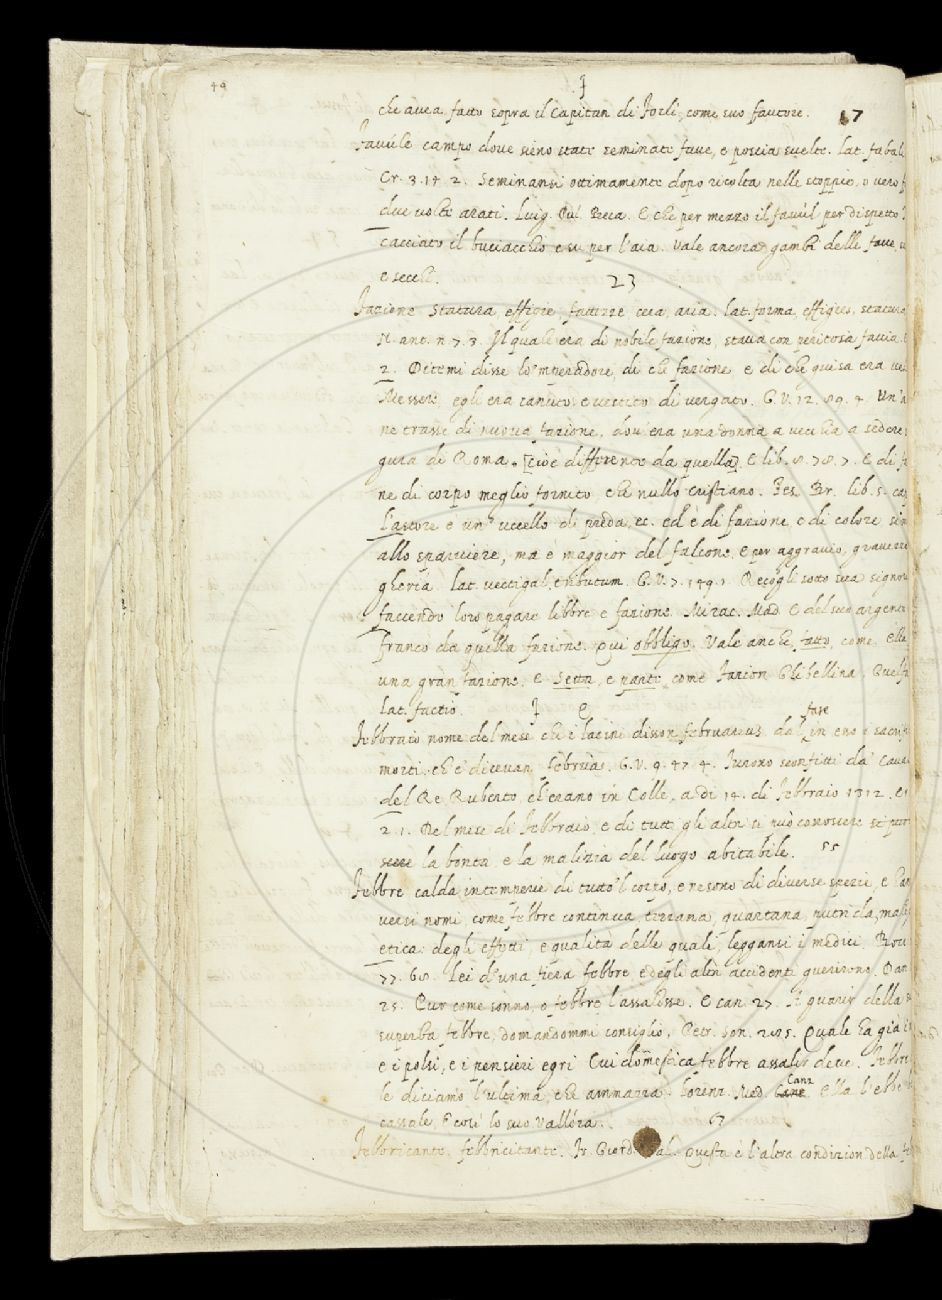 49
F
che avea fatto sopra il Capitan di Forlì, come suo fautore. 17
Favule campo dove sieno state seminate fave, e poscia svelte. lat. fabal
Cr. 3. 14. 2. Seminansi ottimamente dopo ricolta nelle stoppie, o vero
due volte arati. Luig. Pul. Beca. E che per mezzo il favul per dispetto
cacciato il buciacchio e su per l'aia. Vale ancora gambi delle fave
e secchi. 23
Fazione statura effigie, fattezze cera, aria. lat. forma, effigies, statura
N. ant. n. 7. 3. Il quale era di nobile fazione, stava con pericosa faccia.
2. Ditemi disse lo 'mperadore, di che fazione e di che guisa era
Messere, egli era canuto e vestito di vergato. G. V. 12. 89. 4. Un'
ne trasse di nuova fazione, dov'era una donna a vecchia a sedere
gura di Roma. [cioè differente da quella] E lib. 8. 78. 7. E di
ne di corpo meglio fornito che nullo cristiano. Tes. Br. lib. 5. cap
L'astore è un uccello di preda, ec. ed è di fazione, e di colore
allo sparviere, ma è maggior del falcone. E per aggravio, gravezza
gheria. lat. vectigal, tributum. G. V. 7. 149. 1. Recogli sotto sua signor
faccendo loro pagare libbre e fazione. Mirac. Mad. E del suo argento
franco da quella fazione. Qui obbligo. Vale anche, fatto, come
una gran fazione. E Setta, e parte, come Fazion Ghibellina, Guelfa
lat. factio. F E
Febbraio nome del mese che i latini disson februarius dal fare in eno i sacrif
morti, ch'e' dicevan, februas. G. V. 9. 47. 4. Furono sconfitti da' Cava
del Re Ruberto, ch'erano in Colle, a dì 14. di Febbraio 1312.
2. 1. Del mese di Febbraio, e di tutti gli altri si può conoscere
la bontà, e la malizia del luogo abitabile. 55
Febbre calda intemperie di tutto 'l corpo, e ne sono di diverse spezie, e
versi nomi, come febbre continua, terzana, quartana, putrida,
etica: degli effetti, e qualità delle quali, leggansi i medici. Bocc
77. 68. Lei d'una fiera febbre e degli altri accidenti guerirono. Dan
25. Pur come sonno, o febbre l'assalisse. E can. 27. A guarir della
superba febbre, domandommi consiglio. Petr. Son. 285. Quale ha già
e i polsi, e i pensieri egri Cui domestica febbre assalir deve. Febbre
le diciamo l'ultima, che ammazza. Lorenz. Med. Canz. Ella l'ebbe
cassale, E così lo suo Vallera. 67
Febbricante. febbricitante. Fr. Giord. Sal. Questa è l'altra condizion della